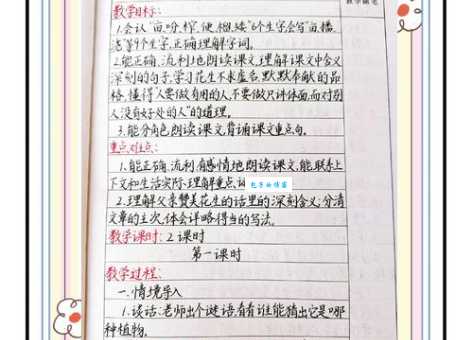 教学随笔
教学目标:
1.会认“亩、吩、榨、便、糊、矮”6个生字,会写“亩、播
芒”等9个生字,正确理解字词。
2.能正确、流利地朗读课文,理解课文中含义
深刻的句子,学习花生不求虚名、默默奉献的品
格,懂得“人要做有用的人,不要做只讲体面,而对别
人没有好处的人”的道理。
3.能分角色朗读课文,背诵课文重点句。
重点难点:
1.能正确、流利、有感情地朗读课文,能联系上
下文和生活实际,理解重点
2.理解父亲赞美花生的话里的深刻含义;分清
文章的主次,体会详略得当的写法。
教学课时:2课时
第一课时
教学过程:
一、情境导入
1.谈话:老师出个谜语,看看谁能猜出它是哪
种植物。